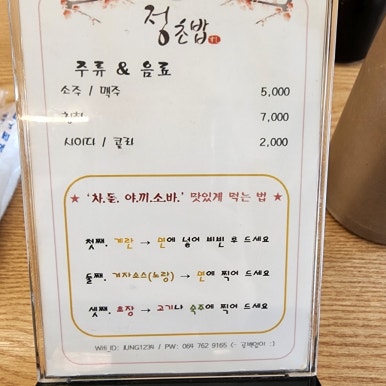 정손밥
주류 & 음료
소주 / 맥주 5,000
청하 7,000
사이다 / 콜라 2,000
★ '차.돌. 야.끼.소.바.' 맛있게 먹는 법 ★
첫째. 계란 → 면에 넣어 비빈 후 드세요
둘째. 겨자소스(노랑) → 면에 찍어 드세요
셋째. 초장 → 고기나 숙주에 찍어 드세요
Wifi_ID: JUNG1234 / PW : 064 762 9165 (- 공백없이 :)